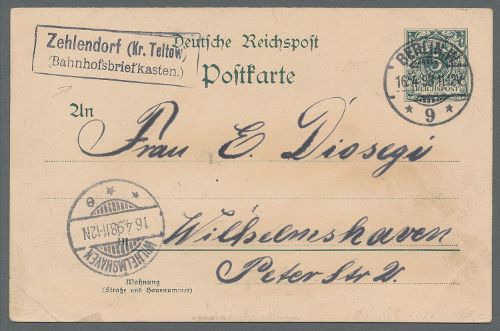 Zehlendorf (Kr. Teltow)
(Bahnhofsbriefkasten.)
Deutsche Reichspost
Postkarte
BERLIN
16.4.98.11-12V.
* 9 *
5
Reichspost
An
Frau E. Diosegi
in
Wilhelmshaven
Peter Str
WILHELMSHAVEN
16.4.98.11-12N.
* e
Wohnung
(Straße und Hausnummer)